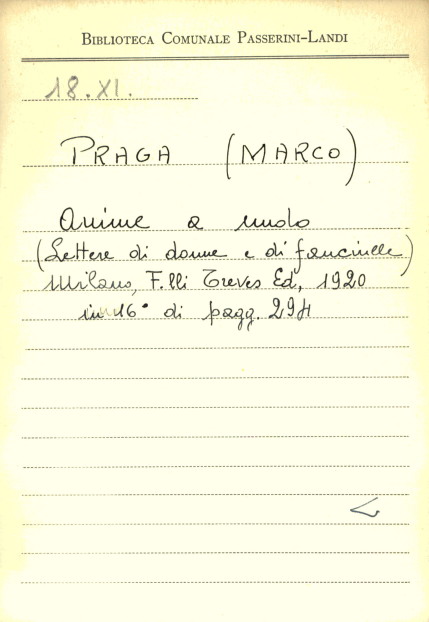 BIBLIOTECA COMUNALE PASSERINI-LANDI
18.XI.
PRAGA (MARCO)
Anime a nudo
(Lettere di donne e di fanciulle)
Milano, F.lli Treves Ed, 1920
in 16° di pagg. 294